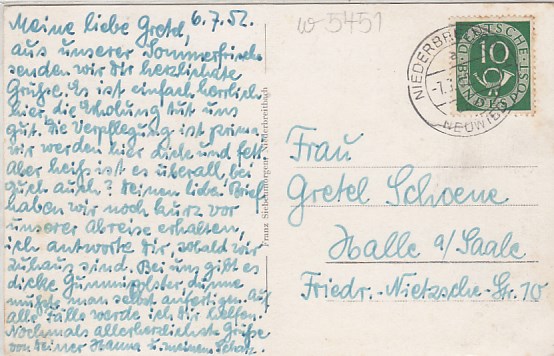 6.7.52.
Meine liebe Gretel,
aus unserer Sommerfrische
senden wir Dir herzlichste
Grüße. Es ist einfach herrlich
hier die Erholung tut uns
gut. Die Verpflegung ist prima
wir werden hier dick und fett
Aber heiß ist es überall, bei
Euch auch? Deinen lieb. Brief
haben wir noch kurz vor
unserer Abreise erhalten,
ich antworte Dir, sobald wir
zuhaus sind. Bei uns gibt es
dicke Gummipolster, dünne
müßte man selbst anfertigen. Auf
alle Fälle werde ich Dir helfen.
Nochmals allerherzlichste Grüße
von Deiner Hanna u. meinem Schatz.
Franz Siebenmorgen, Niederbreitbach
w 5451
NIEDERBR
-7.7
NEUWIED
DEUTSCHE BUNDESPOST
10
Frau
Gretel Schoene
Halle a/Saale
Friedr.-Nietzsche-Str. 10